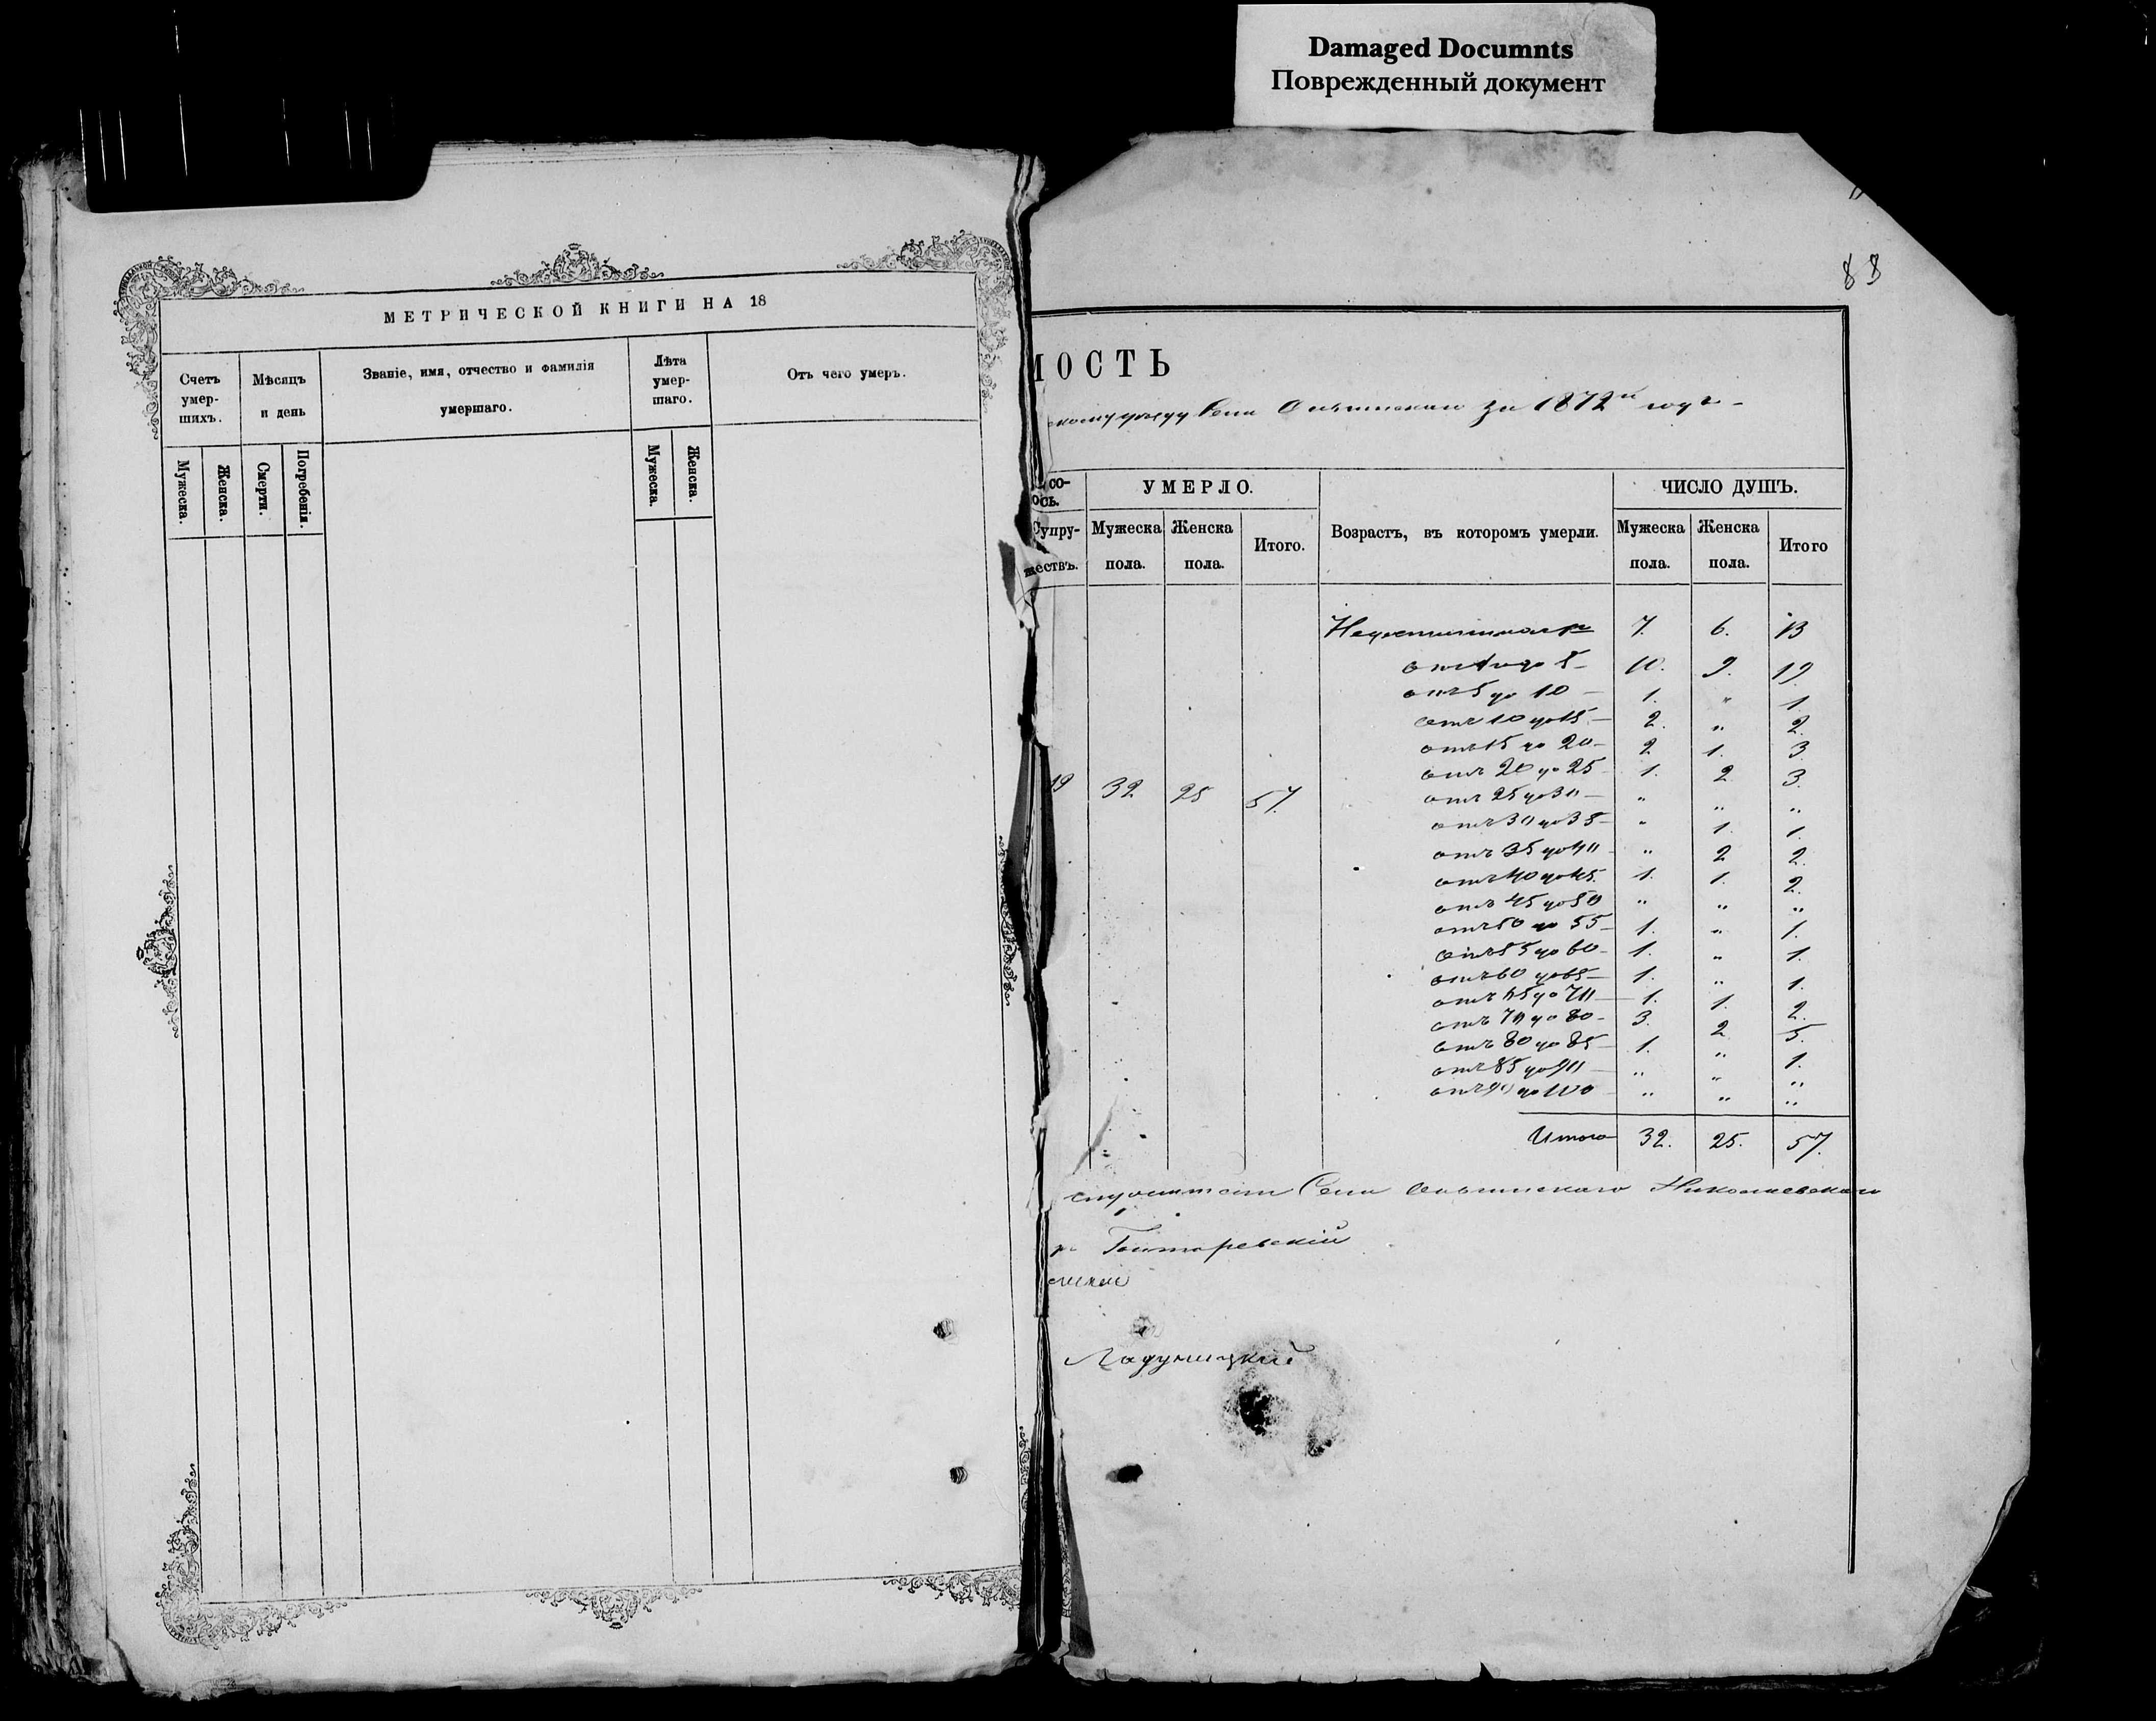 Damaged Documnts
Поврежденный документ
МЕТРИЧЕСКОЙ КНИГИ НА 18
Счетъ умер-шихъ.
Мѣсяцъ и день
Званіе, имя, отчество и фамилія умершаго.
Лѣта умер-шаго.
Отъ чего умеръ.
Мужеска.
Женска.
Смерти.
Погребенія.
Мужеска.
Женска.
88
МОСТЬ
за 1872й годъ
со-
ось.
УМЕРЛО.
Возрастъ, въ которомъ умерли.
ЧИСЛО ДУШЪ.
Супру-жествъ.
Мужеска пола.
Женска пола.
Итого.
Мужеска пола.
Женска пола.
Итого
7. 6. 13
до 5 10. 9. 19.
отъ 5 до 10 1. " 1.
отъ 10 до 15 2. " 2.
отъ 15 до 20 2. 1. 3.
отъ 20 до 25 1. 2. 3.
19 32 25 57.
отъ 25 до 30 " " "
отъ 30 до 35 " 1. 1.
отъ 35 до 40 " 2 2.
отъ 40 до 45 1. 1. 2.
отъ 45 до 50 " " "
отъ 50 до 55 1. " 1.
отъ 55 до 60 1. " 1.
отъ 60 до 65 1. " 1.
отъ 65 до 70 1. 1. 2.
отъ 70 до 80 3. 2 5.
отъ 80 до 85 1. " 1.
отъ 85 до 90 " " "
отъ 90 до 100 " " "
Итого 32. 25. 57.
Села Николаевскаго